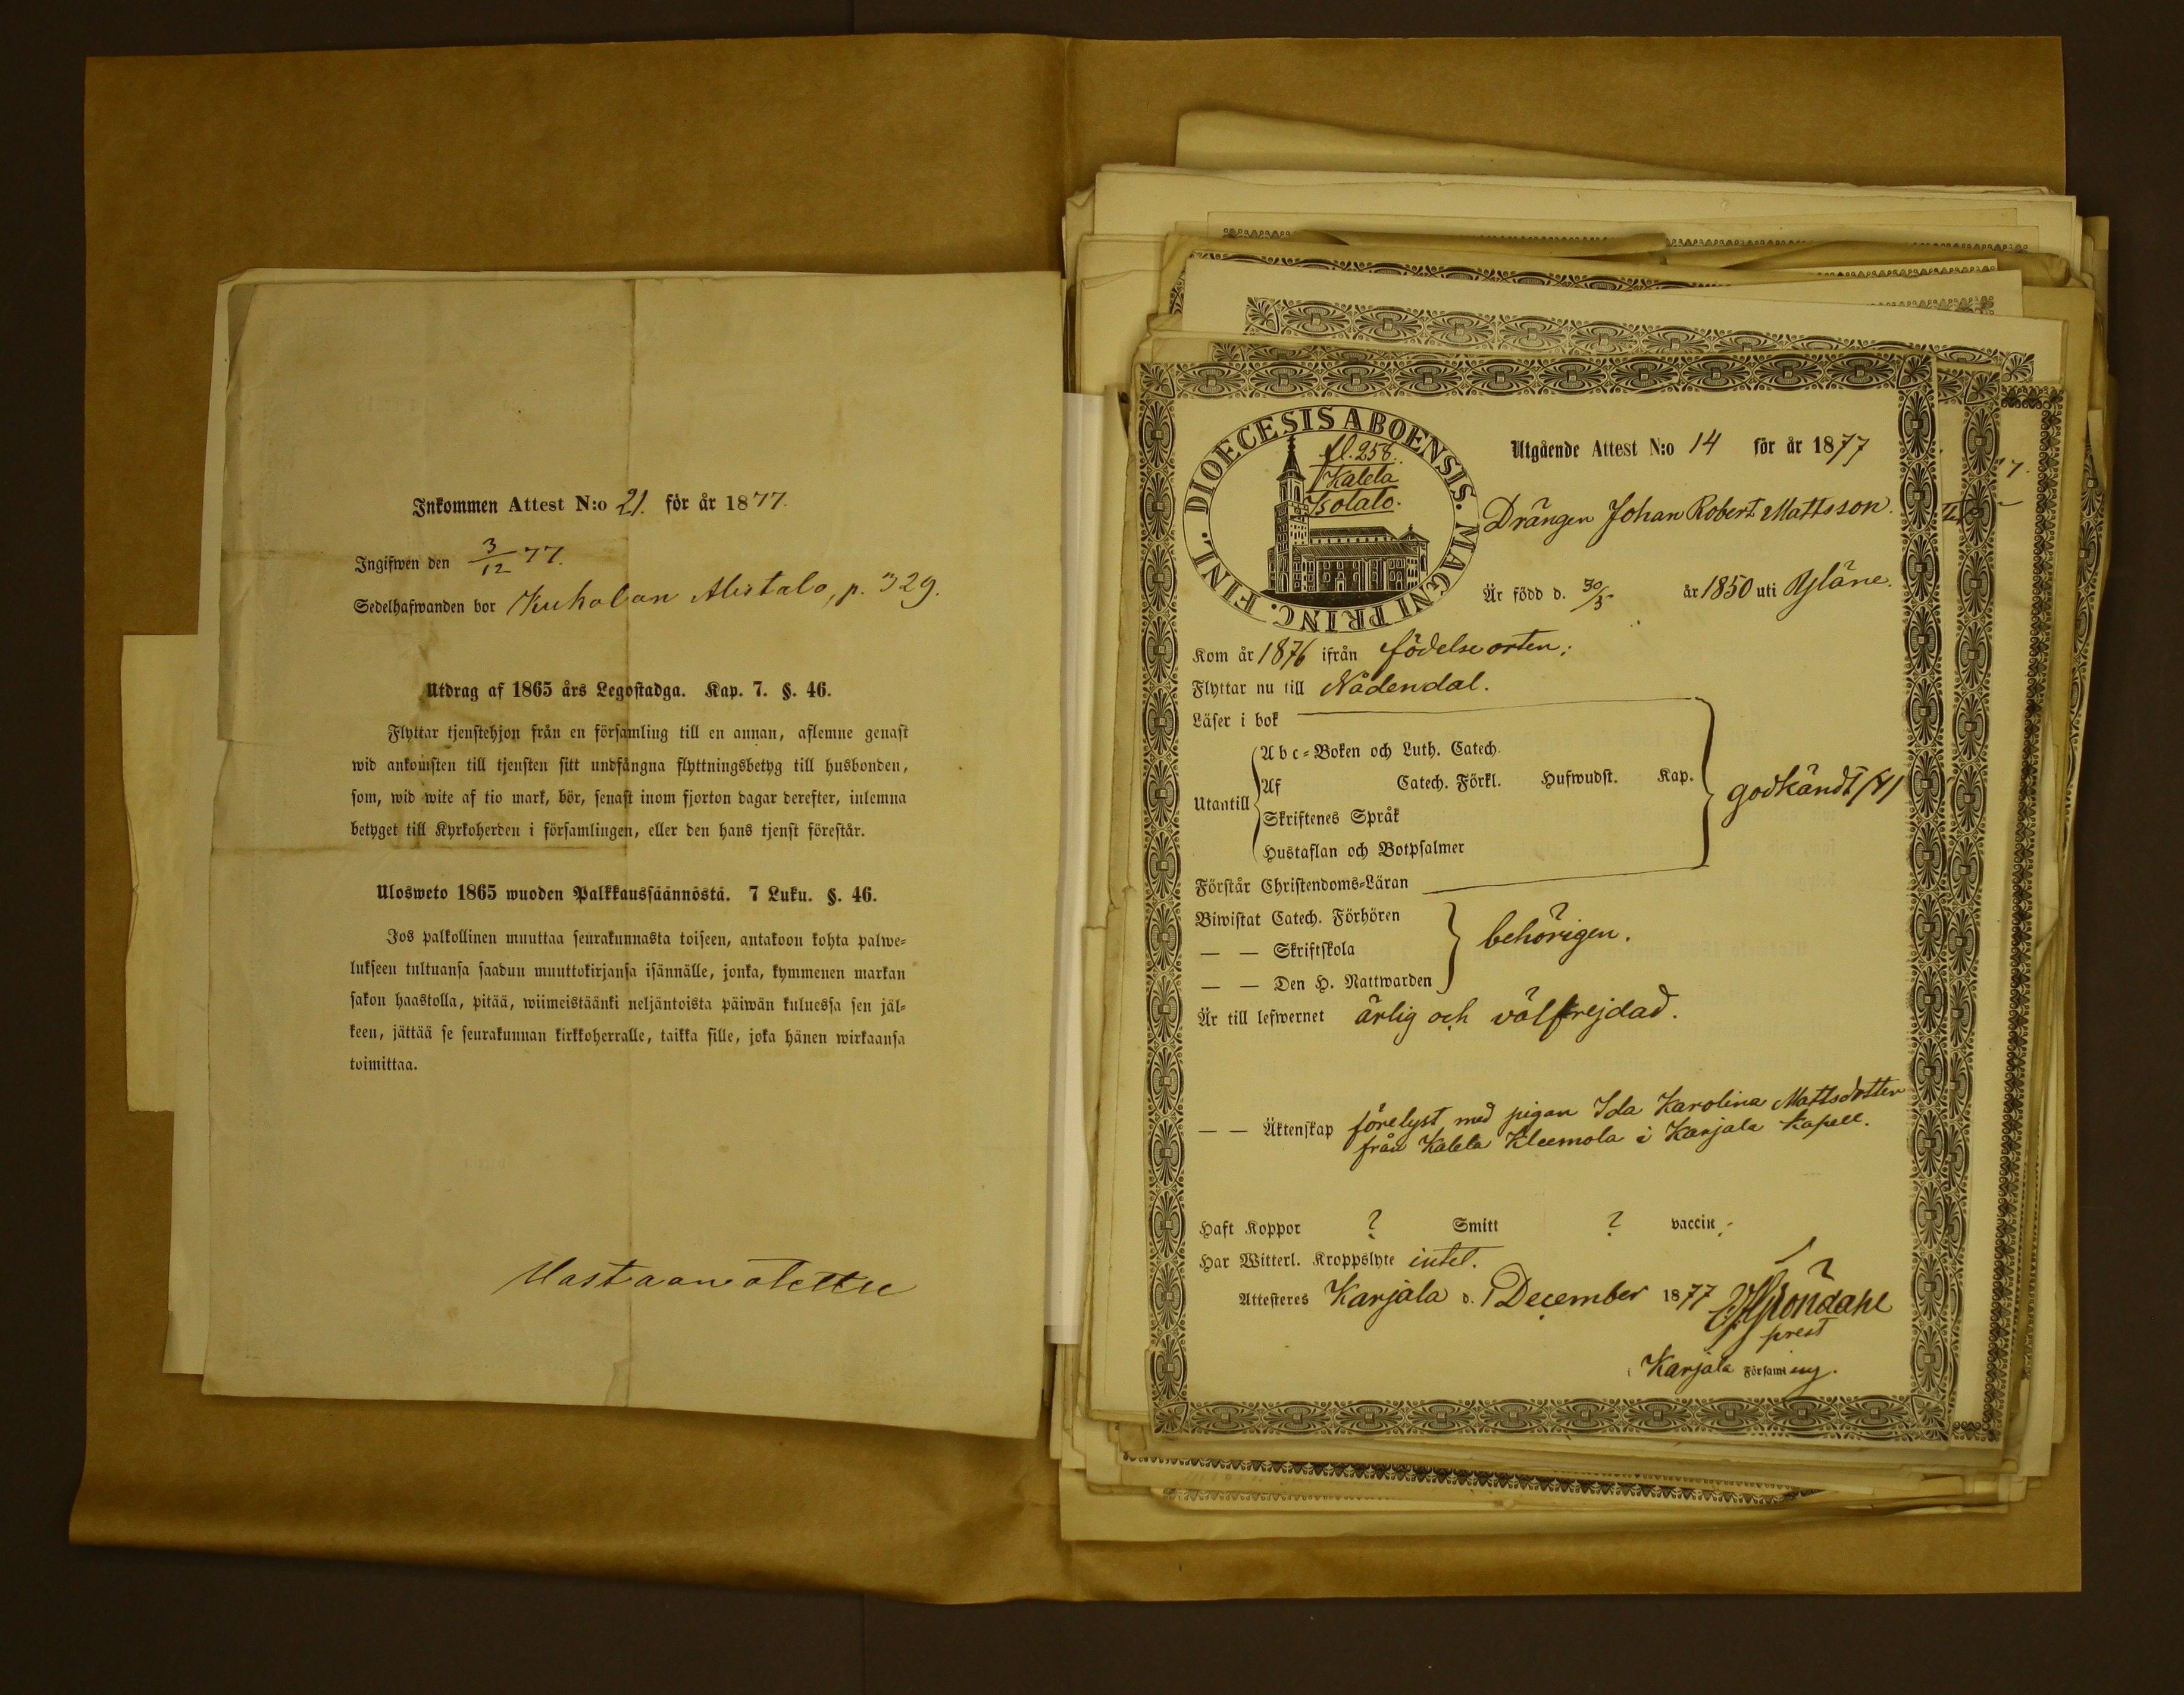 Inkommen Attest N:o 21. för år 1877.
Ingifwen den 3/12 77.
Sedelhafwanden bor Kuholan Alistalo, p. 329.
Utdrag af 1865 års Legostadga. Kap. 7. §. 46.
Flyttar tjenstehjon från en församling till en annan, aflemne genast
wid ankomsten till tjensten sitt undfångna flyttningsbetyg till husbonden,
som, wid wite af tio mark, bör, senast inom fjorton dagar derefter, inlemna
betyget till Kyrkoherden i församlingen, eller den hans tjenst förestår.
Ulosweto 1865 wuoden Palkkaussäännöstä. 7 Luku. §. 46.
Jos palkollinen muuttaa seurakunnasta toiseen, antakoon kohta palwe-
lukseen tultuansa saadun muuttokirjansa isännälle, jonka, kymmenen markan
sakon haastolla, pitää, wiimeistäänki neljäntoista päiwän kuluessa sen jäl-
keen, jättää se seurakunnan kirkkoherralle, taikka sille, joka hänen wirkaansa
toimittaa.
Vastaanotettu
DIOECESIS ABOENSIS. MAGNI PRINC. FINL.
fl. 258.
Kalela
Isotalo.
Utgående Attest N:o 14 för år 1877
Drängen Johan Robert Mattsson.
Är född d. 30/5 år 1850 uti Yläne.
Kom år 1876 ifrån födelseorten;
Flyttar nu till Nådendal.
Läser i bok
Utantill
Abc-Boken och Luth. Catech.
Af Catech. Förkl. Hufwudst. Kap.
godkändt
Skriftenes Språk
Hustaflan och Botpsalmer
Förstår Christendoms-Läran
Biwistat Catech. Förhören
— — Skriftskola
behörigen.
— — Den H. Nattwarden
Är till lefwernet ärlig och välfrejdad.
— — Äktenskap förelyst med pigan Ida Karolina Mattsdotter
från Kalela Kleemola i Karjala kapell.
Haft Koppor ? Smitt ? vaccin
Har Witterl. Kroppslyte intet.
Attesteres Karjala d. 1 December 1877
Gröndahl
prest
Karjala Församling.